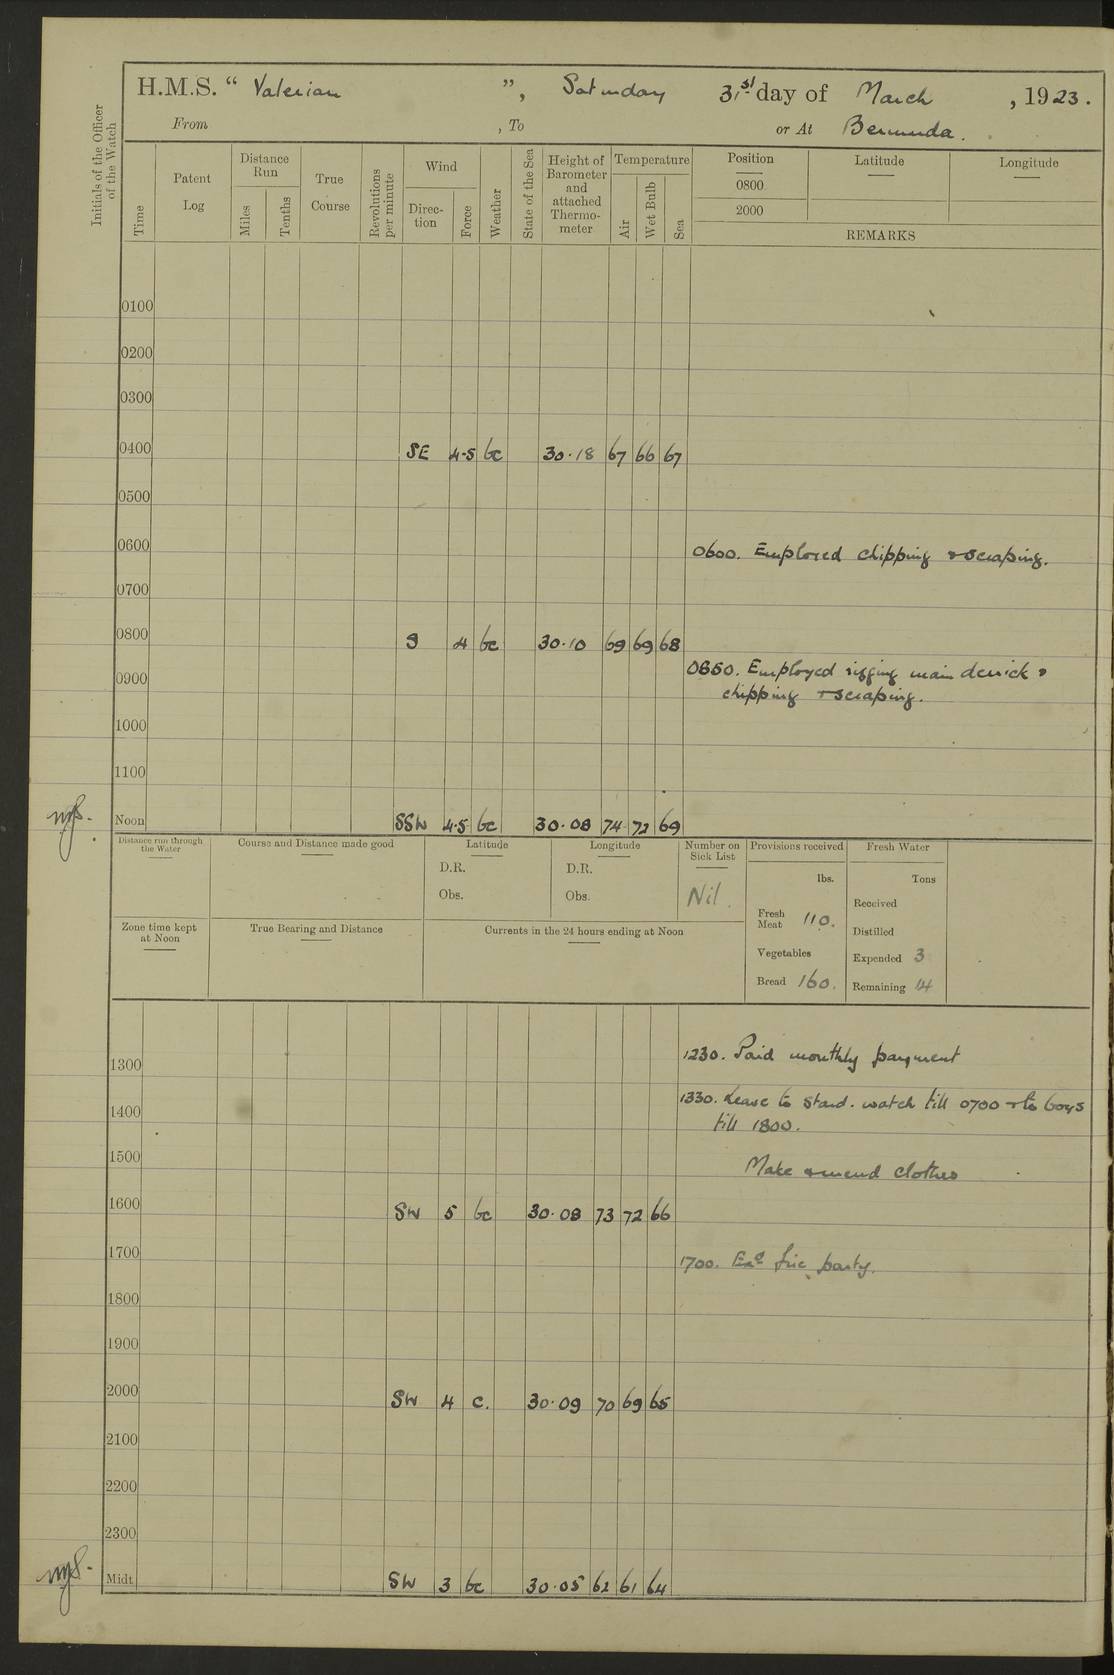 H.M.S. “ Valerian ”, Saturday 31st day of March , 1923.
From , To or At Bermuda.
Initials of the Officer of the Watch
Time
Patent Log
Distance Run
Miles
Tenths
True Course
Revolutions per minute
Wind
Direction
Force
Weather
State of the Sea
Height of Barometer and attached Thermometer
Temperature
Air
Wet Bulb
Sea
Position
Latitude
Longitude
0800
2000
REMARKS
0100
0200
0300
0400 SE 4-5 bc 30.18 67 66 67
0500
0600 0600. Employed chipping & scraping.
0700
0800 S 4 bc 30.10 69 69 68
0850. Employed rigging main derrick &
0900 chipping & scraping.
1000
1100
Noon SSW 4.5 bc 30.08 74 72 69
Distance run through the Water
Course and Distance made good
Latitude
D.R.
Obs.
Longitude
D.R.
Obs.
Number on Sick List
Nil.
Provisions received
lbs.
Fresh Meat 110.
Vegetables
Bread 160.
Fresh Water
Tons
Received
Distilled
Expended 3
Remaining 14
Zone time kept at Noon
True Bearing and Distance
Currents in the 24 hours ending at Noon
1230. Paid monthly payment
1300
1330. Leave to Stard. watch till 0700 & to boys
1400 till 1800.
1500 Make & mend clothes
1600 SW 5 bc 30.08 73 72 66
1700 1700. Exd fire party.
1800
1900
2000 SW 4 c. 30.09 70 69 65
2100
2200
2300
Midt. SW 3 bc 30.05 62 61 64